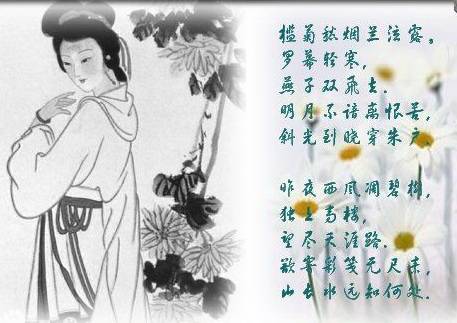 槛菊愁烟兰泣露。
罗幕轻寒，
燕子双飞去．
明月不谙离恨苦，
斜光到晓穿朱户．
昨夜西风凋碧树，
独上高楼，
望尽天涯路．
欲寄彩笺无尺素，
山长水远知何处．